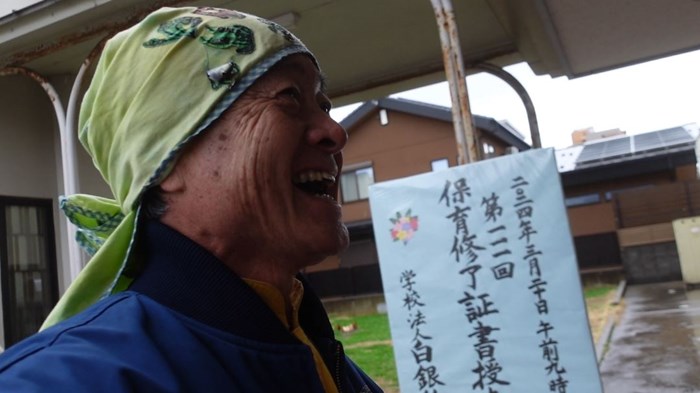 二〇二四年三月二十日 午前九時
第一一一回
保育修了証書授
学校法人白銀